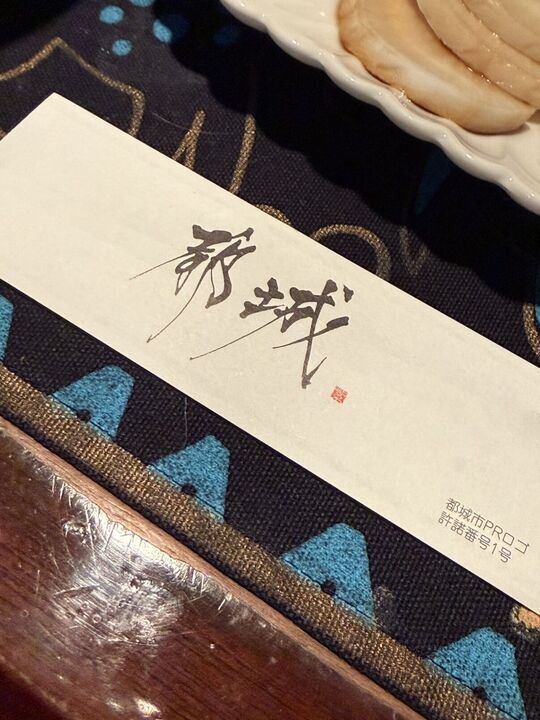 都城
都城市PRロゴ
許諾番号1号